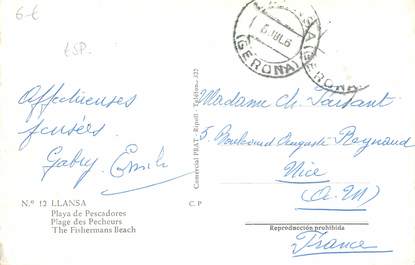 6-E
ESP.
Affectueuses
pensées
Gaby Emile
Nº 12 LLANSA
Playa de Pescadores
Plage des Pecheurs
The Fishermans Beach
C. P
Comercial PRAT - Ripoll - Teléfono 322
(GERONA)
(GERONA)
Madame Ch.
5, Boulevard Auguste Reynaud
Nice
(A.M)
Reproducción prohibida
France